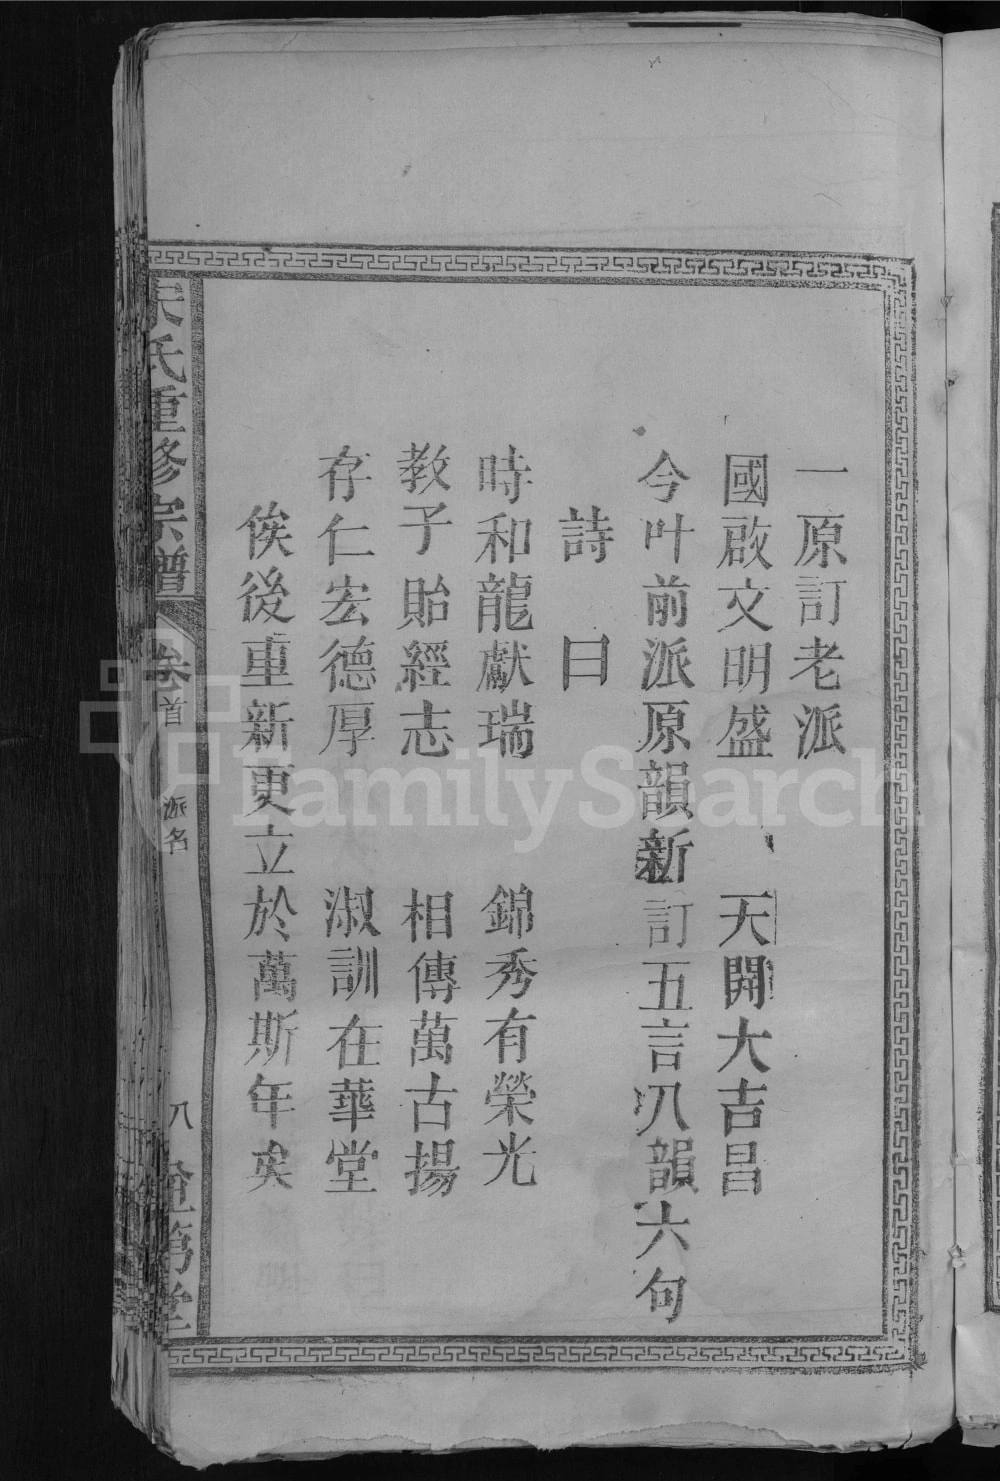 一原訂老派
國啟文明盛 天開大吉昌
今叶前派原韻新訂五言八韻六句
詩曰
時和龍獻瑞 錦秀有榮光
教子貽經志 相傳萬古揚
存仁宏德厚 淑訓在華堂
俟後重新更立於萬斯年矣
氏重修宗譜 卷首 派名 八 堂
FamilySearch